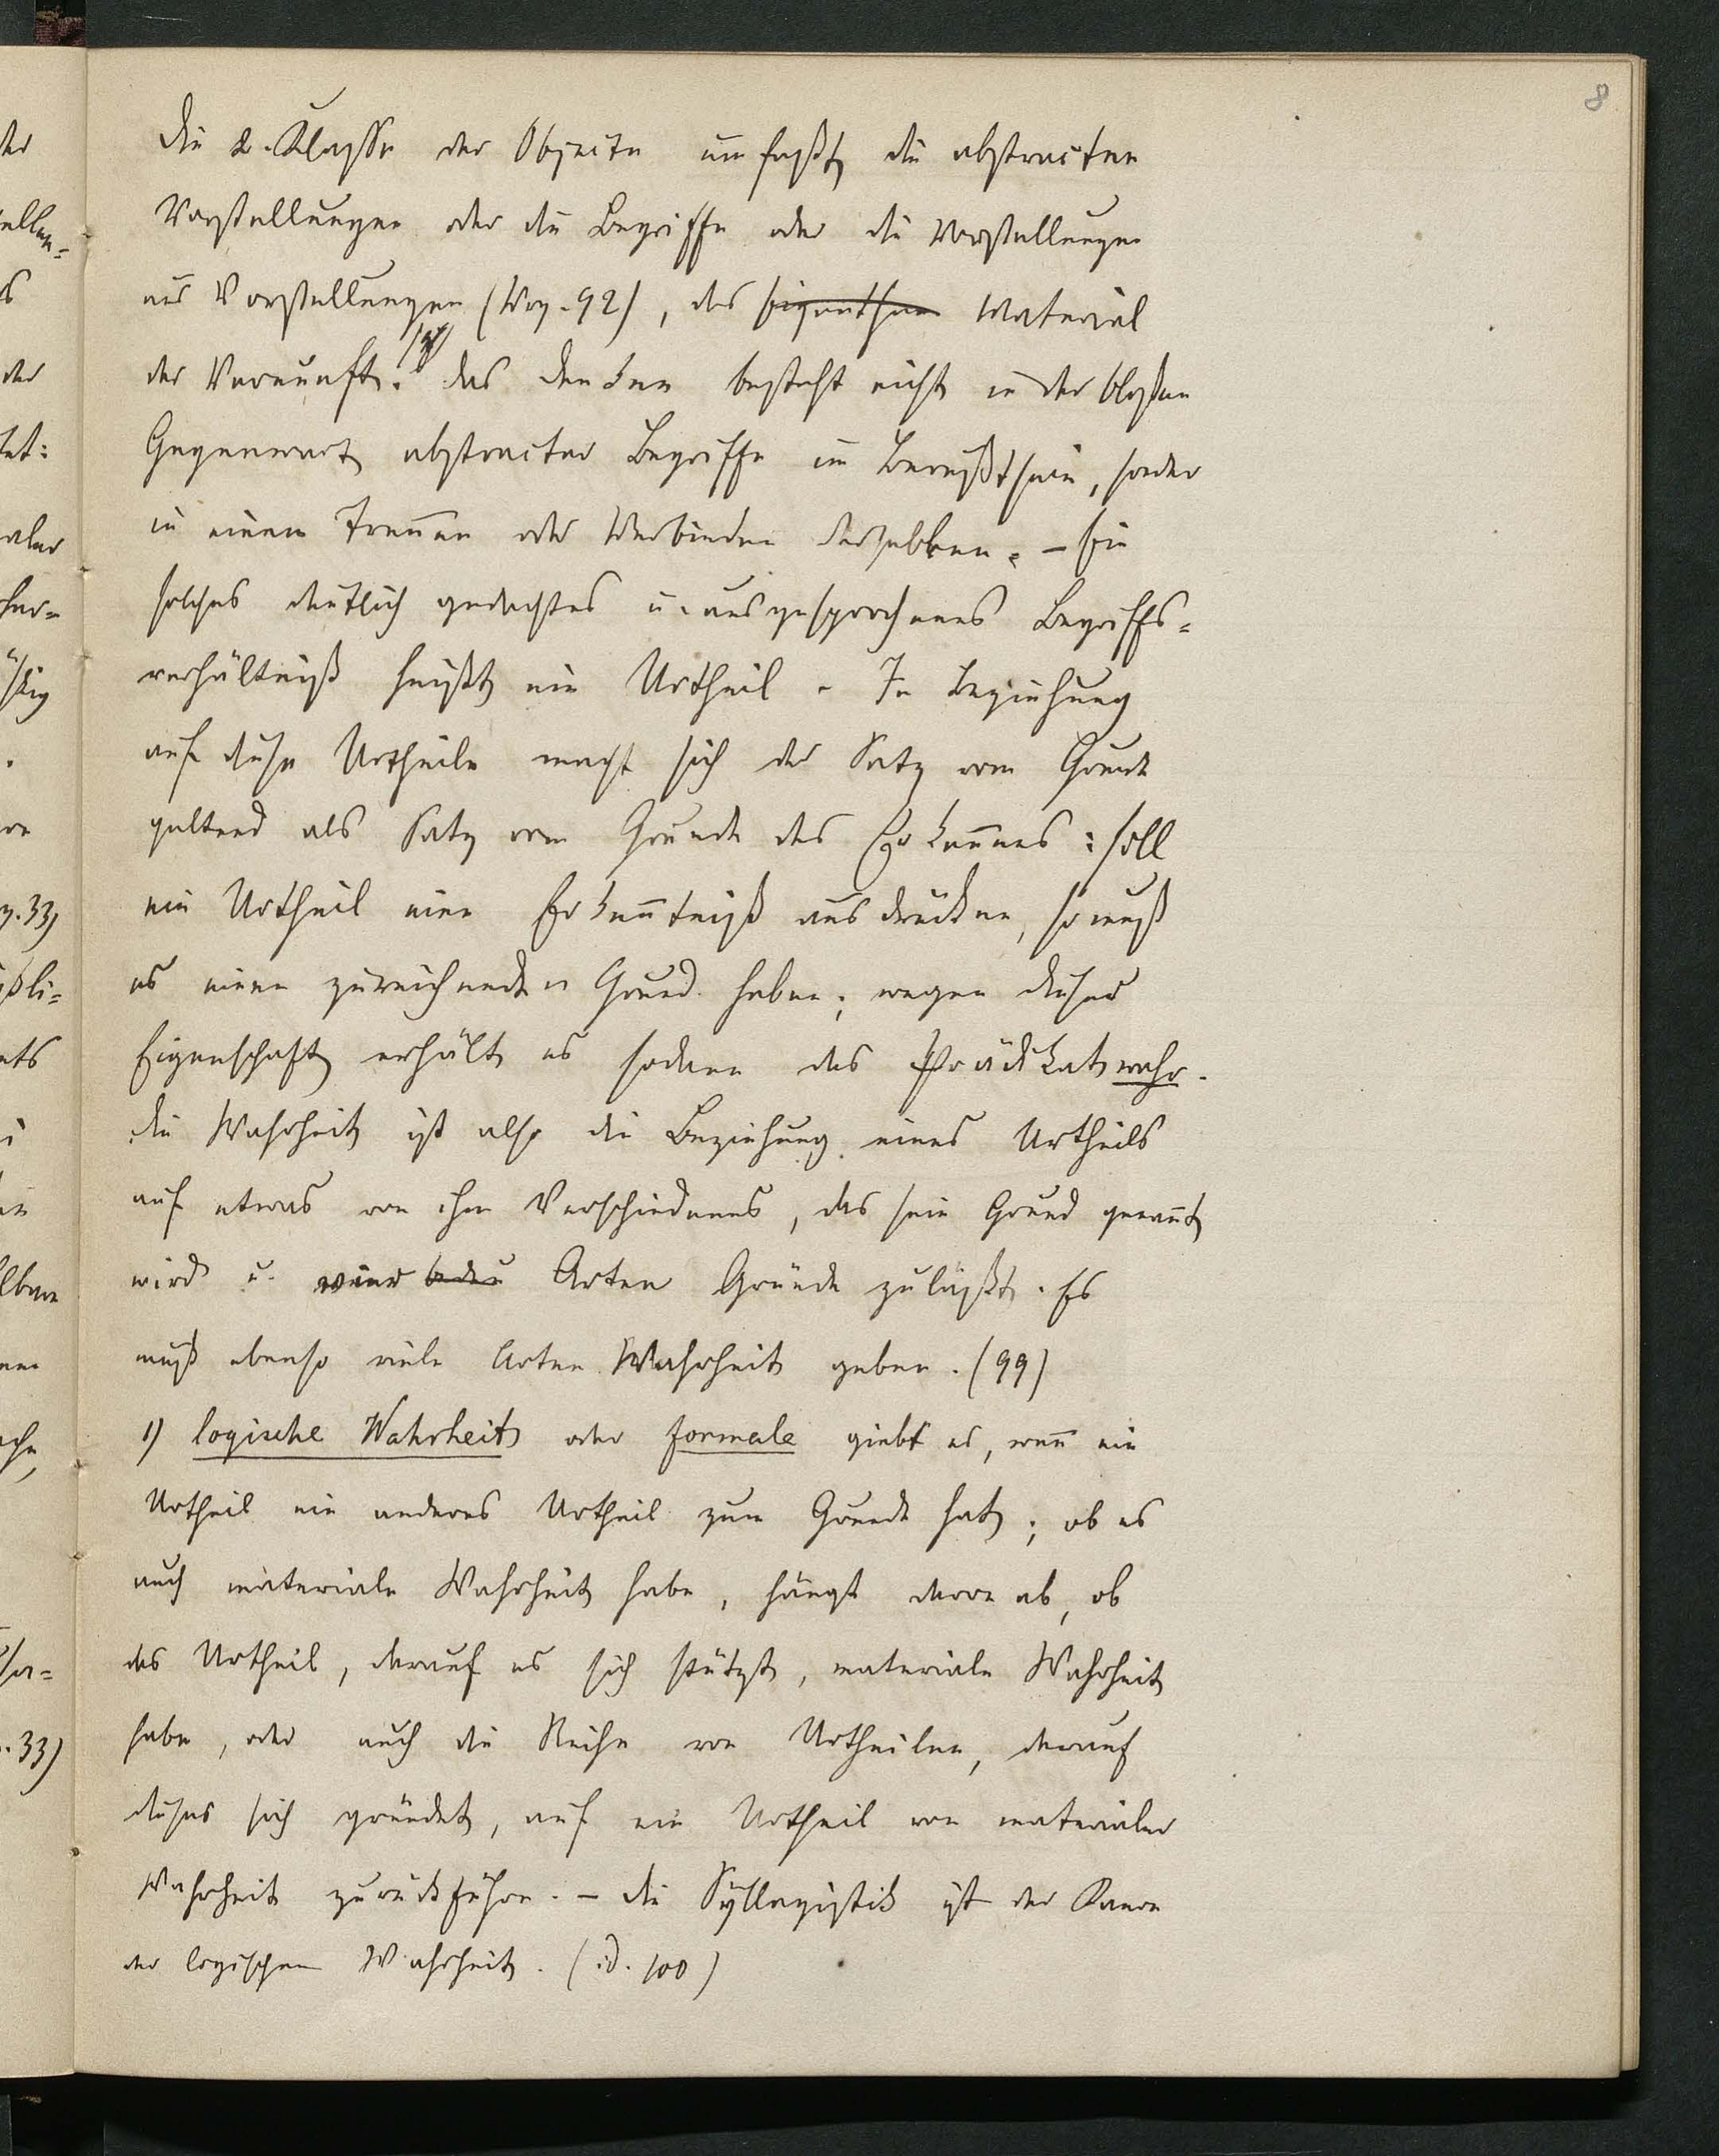 8
Die 2. Klasse der Objecte umfaßt die abstracten
Vorstellungen oder die Begriffe oder die Vorstellungen
aus Vorstellungen (Wrz. 92), das Material
der Vernunft. Das Denken besteht nicht in der bloßen
Gegenwart abstracter Begriffe im Bewußtsein, sonder
in einem Treñen oder Verbinden derselben. – Ein
solches deutlich gedachtes u. ausgesprochenes Begriffs=
verhältniß heißt ein Urtheil. In Beziehung
auf diese Urtheile macht sich der Satz vom Grunde
geltend als Satz vom Grunde des Erkeñens: soll
ein Urtheil eine Erkeñtniß ausdrücken, so muß
es einen zureichenden Grund haben; wegen dieser
Eigenschaft erhält es sodann das Prädikat wahr.
Die Wahrheit ist also die Beziehung eines Urtheils
auf etwas von ihm Verschiedenes, das sein Grund genañt
wird u. vier Arten Gründe zuläßt. Es
muß ebenso viele Arten Wahrheit geben. (99)
1) logische Wahrheit oder formale giebt es, weñ ein
Urtheil ein anderes Urtheil zum Grunde hat; ob es
auch materiale Wahrheit habe, hängt davon ab, ob
das Urtheil, darauf es sich stützt, materiale Wahrheit
habe, oder auch die Reihe von Urtheilen, darauf
dieses sich gründet, auf ein Urtheil von materialer
Wahrheit zurückführe. – Die Syllogistik ist der Kanon
der logischen Wahrheit. (id. 100)